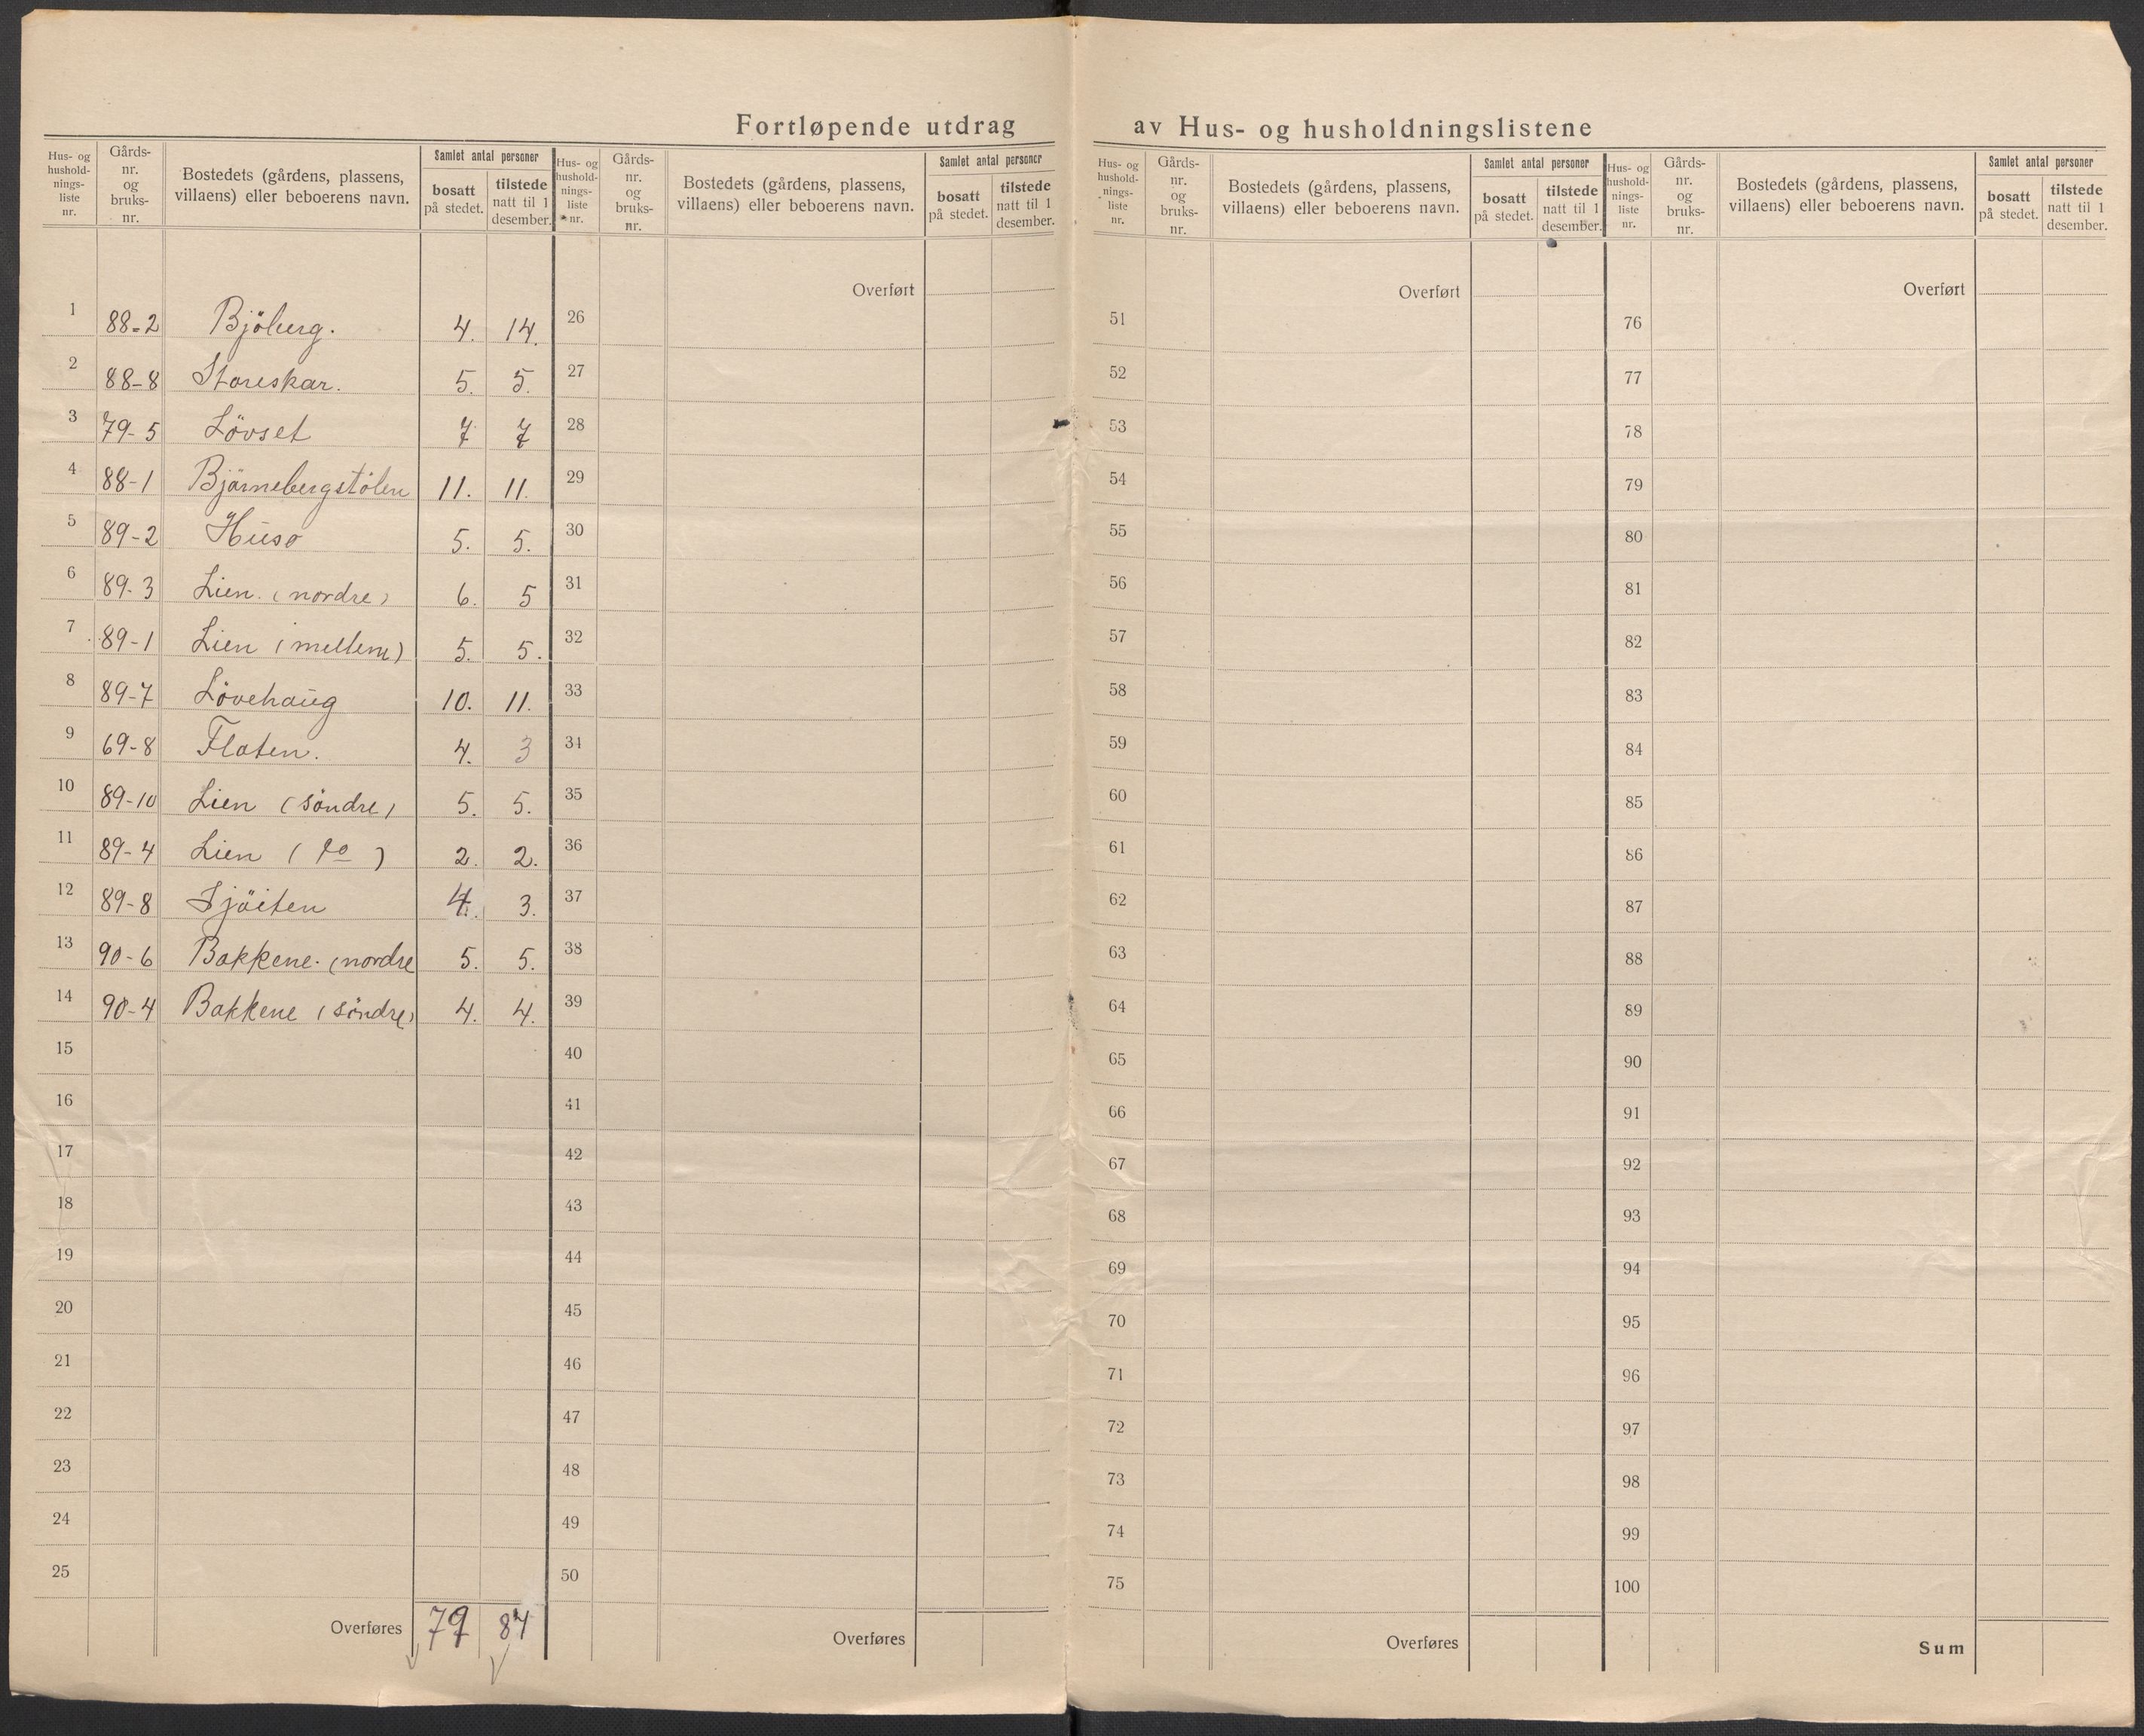 Fortløpende utdrag av Hus- og husholdningslistene
Hus- og hushold- nings- liste nr.
Gårds- nr. og bruks- nr.
Bostedets (gårdens, plassens, villaens) eller beboerens navn.
Samlet antal personer
bosatt på stedet.
tilstede natt til 1 desember.
1 88-2 Bjöberg. 4. 14.
2 88-8 Storeskar. 5. 5.
3 79-5 Lövset 7 7
4 88-1 Bjørnebergstölen 11. 11.
5 89-2 Huso 5. 5.
6 89-3 Lien (nordre) 6. 5
7 89-1 Lien (mellem) 5. 5.
8 89-7 Lövehaug 10. 11.
9 69-8 Flaten. 4. 3
10 89-10 Lien (söndre) 5. 5.
11 89-4 Lien (do) 2. 2.
12 89-8 4. 3.
13 90-6 Bakkene. (nordre 5. 5.
14 90-4 Bakkene (söndre) 4. 4.
15
16
17
18
19
20
21
22
23
24
25
Overføres 77 84
Hus- og hushold- nings- liste nr.
Gårds- nr. og bruks- nr.
Bostedets (gårdens, plassens, villaens) eller beboerens navn.
Samlet antal personer
bosatt på stedet.
tilstede natt til 1 desember.
Overført
26
27
28
29
30
31
32
33
34
35
36
37
38
39
40
41
42
43
44
45
46
47
48
49
50
Overføres
Hus- og hushold- nings- liste nr.
Gårds- nr. og bruks- nr.
Bostedets (gårdens, plassens, villaens) eller beboerens navn.
Samlet antal personer
bosatt på stedet.
tilstede natt til 1 desember.
Overført
51
52
53
54
55
56
57
58
59
60
61
62
63
64
65
66
67
68
69
70
71
72
73
74
75
Overføres
Hus- og hushold- nings- liste nr.
Gårds- nr. og bruks- nr.
Bostedets (gårdens, plassens, villaens) eller beboerens navn.
Samlet antal personer
bosatt på stedet.
tilstede natt til 1 desember.
Overført
76
77
78
79
80
81
82
83
84
85
86
87
88
89
90
91
92
93
94
95
96
97
98
99
100
Sum